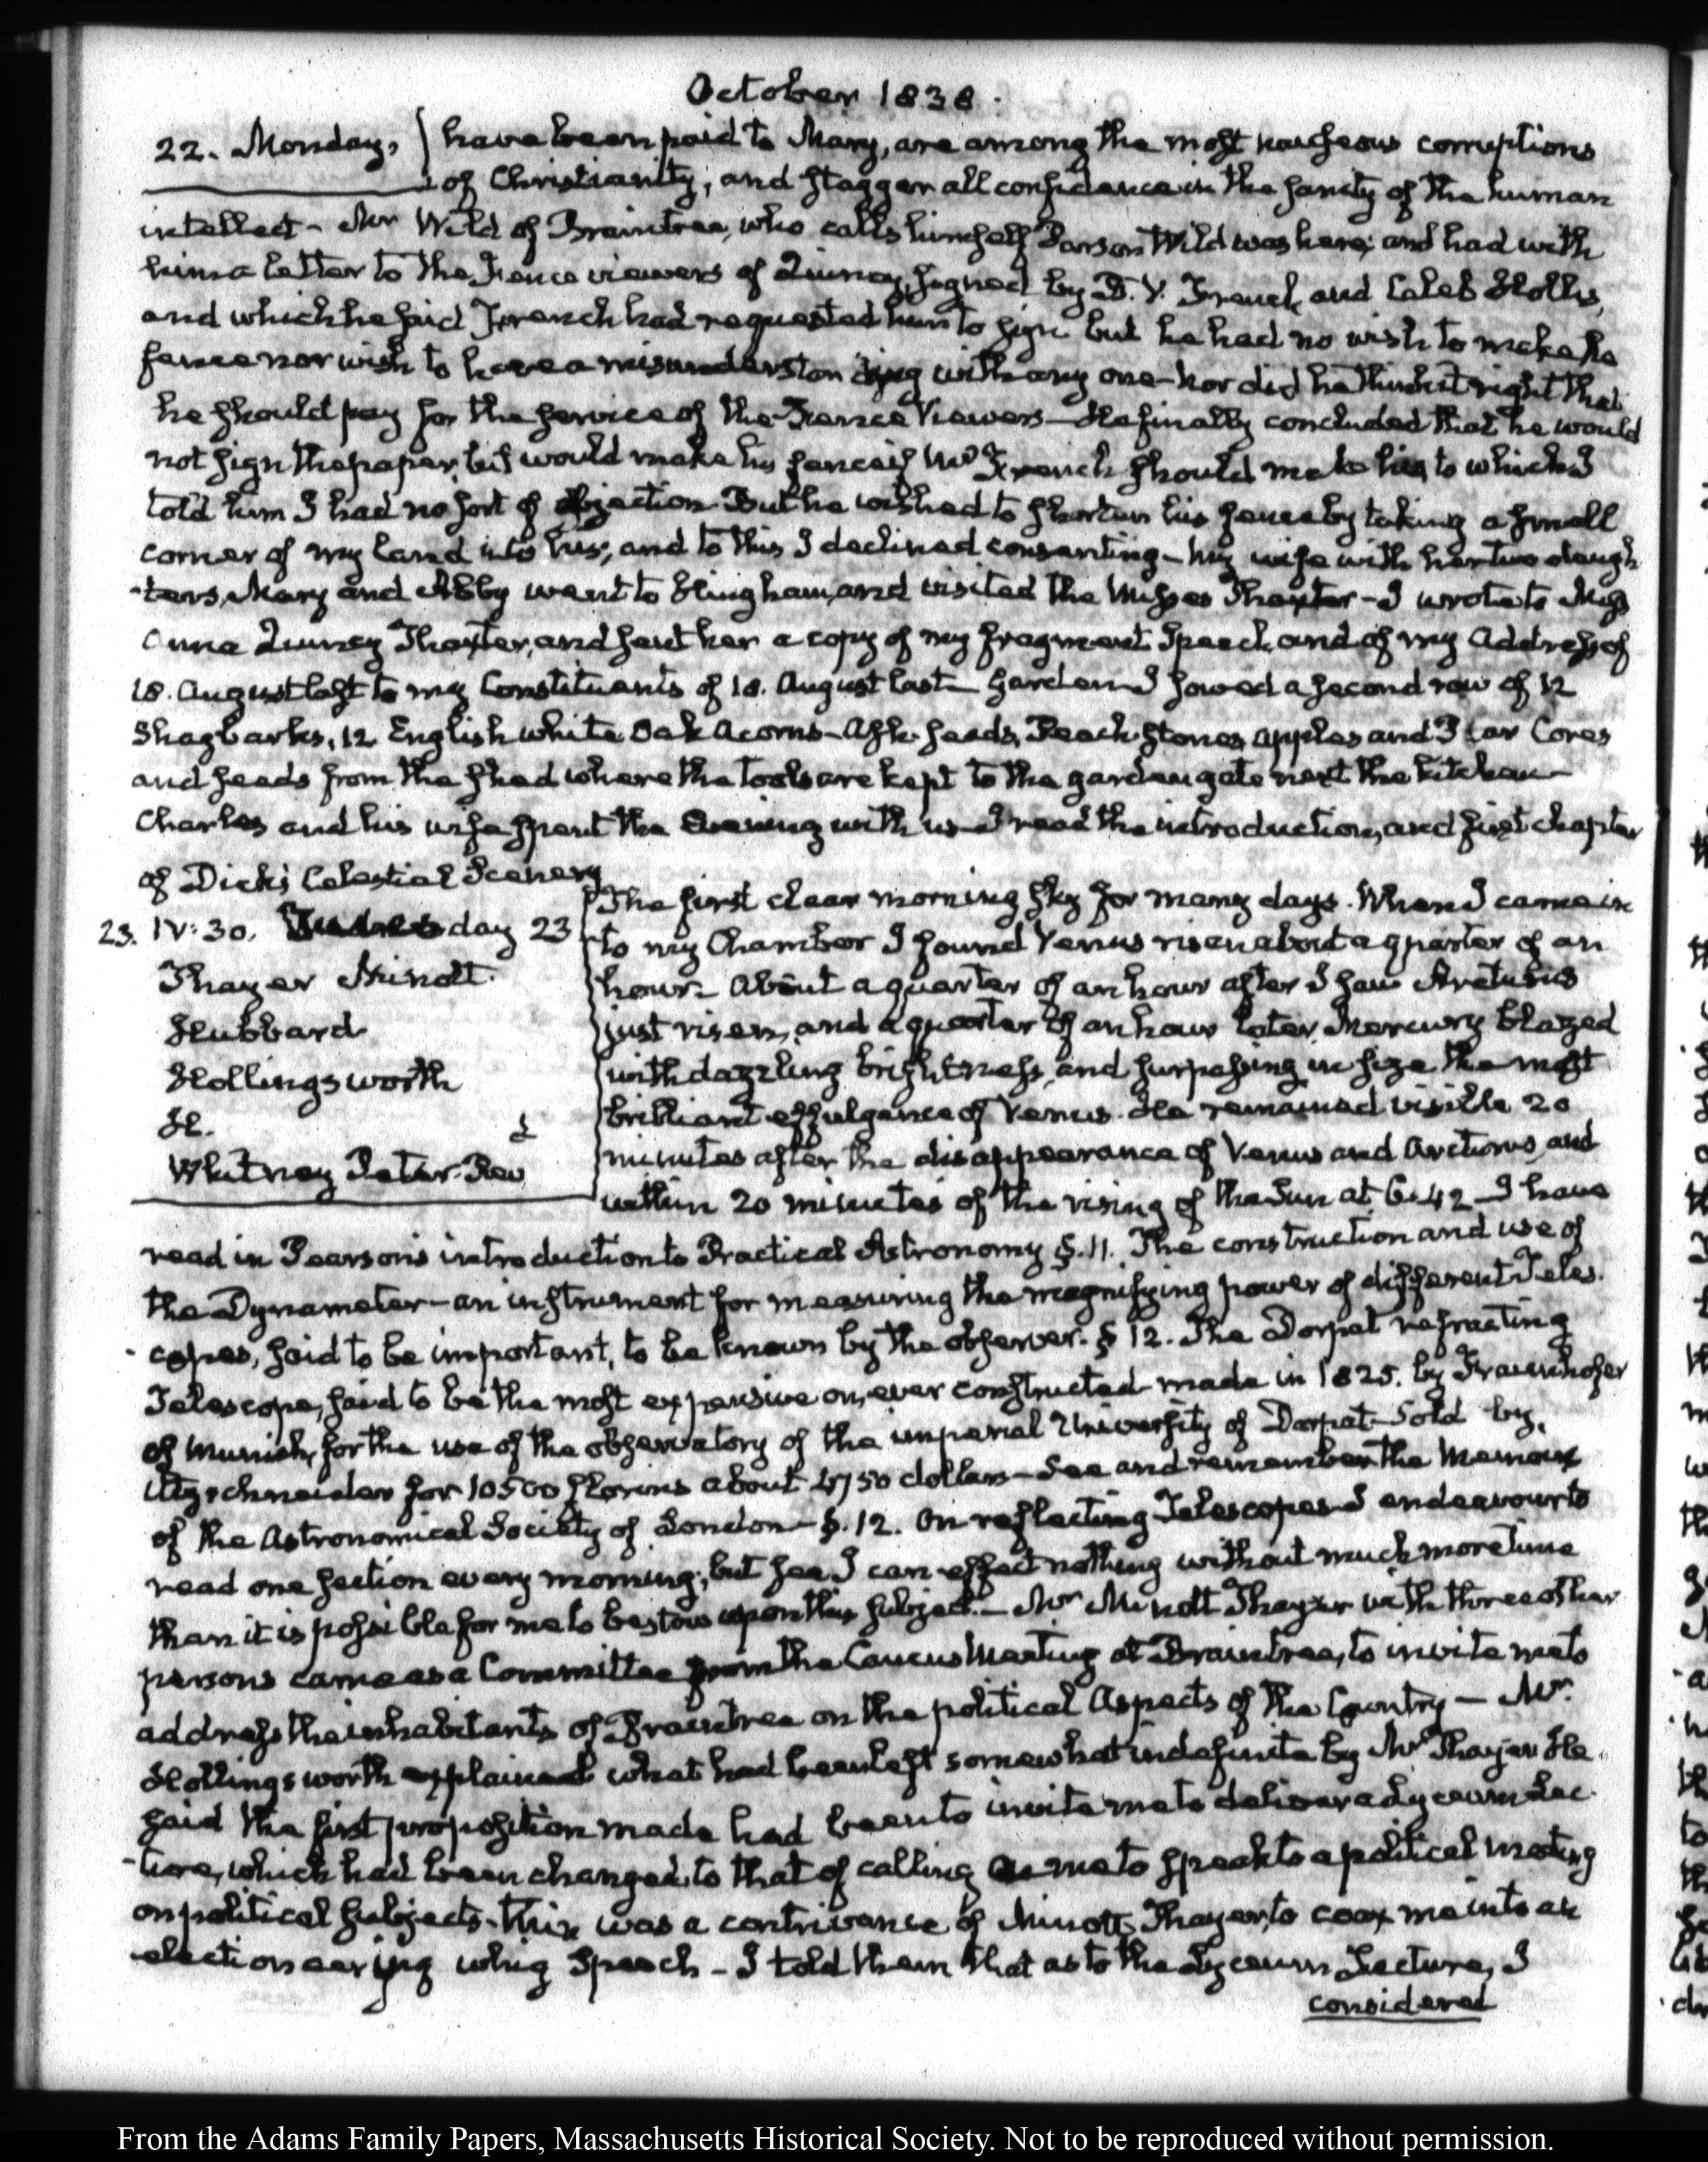 October 1838.
22. Monday, have been paid to Mary, are among the most nauseous corruptions
of Christianity; and stagger all confidence in the sanity of the human
intellect - Mr Wild of Braintree, who calls himself Parson Wild was here; and had with
him a letter to the Fence viewers of Quincy, signed by B. V. French and Caleb Hollis,
and which he said French had requested him to sign but he had no wish to make the
fence nor wish to have a misunderstanding with any one - nor did he think it right that
he should pay for the service of the Fence Viewers - He finally concluded that he would
not sign the paper, but would make his fence if Mr French should make his, to which I
told him I had no sort of objection. But he wished to shorten his fence by taking a small
corner of my land into his; and to this I declined consenting - My wife with her two daugh
-ters, Mary and Abby went to Hingham, and visited the Misses Thaxter - I wrote to Miss
Anna Quincy Thaxter, and sent her a copy of my fragment Speech and of my Address of
18. August last to my Constituents of 18. August last - Garden I sowed a second row of 12
Shagbarks, 12 English white Oak Acorns - Ash seeds, Peach stones, apples and Cores
and seeds from the shed where the tools are kept to the garden gate next the kitchen -
Charles and his wife spent the Evening with us - I read the introduction, and first chapter
of Dick's Celestial Scenery
23. IV:30. day 23
Thayer Minott.
Hubbard
Hollingsworth
H. &
Whitney Peter. Rev
The first clear morning sky for many days. When I came in
to my Chamber I found Venus risen about a quarter of an
hour. About a quarter of an hour after I saw Arcturus
just risen, and a quarter of an hour later, Mercury blazed
with dazzling brightness, and surpassing in size the most
brilliant effulgence of Venus. He remained visible 20
minutes after the disappearance of Venus and Arcturus, and
within 20 minutes of the rising of the Sun at 6.42 - I have
read in Pearson's introduction to Practical Astronomy §.11. The construction and use of
the Dynameter - an instrument for measuring the magnifying power of different Teles.
copes, said to be important, to be known by the observer. § 12. The Dorpat refracting
Telescope, said to be the most expensive one, ever constructed - made in 1825. by Fraunhofer
of Munich, for the use of the observatory of the imperial University of Dorpat - Sold by
Utzschneider for 10500 florins about 4750 dollars - See and remember the Memoirs
of the Astronomical Society of London - §.12. On reflecting Telescopes I endeavour to
read one section every morning; but see I can effect nothing without much more time
than it is possible for me to bestow upon this subject. - Mr Minott Thayer with three other
persons came as a Committee from the Caucus Meeting at Braintree, to invite me to
address the inhabitants of Braintree on the political Aspects of the Country - Mr.
Hollingsworth explained what had been left somewhat indefinite by Mr Thayer. He
said the first proposition made had been to invite me to deliver a Lyceum Lec
-ture, which had been changed to that of calling me to speak to a political meeting
on political subjects. This was a contrivance of Minott Thayer, to coax me into an
electioneering whig Speech - I told them that as to the Lyceum Lecture, I
considered
From the Adams Family Papers, Massachusetts Historical Society. Not to be reproduced without permission.